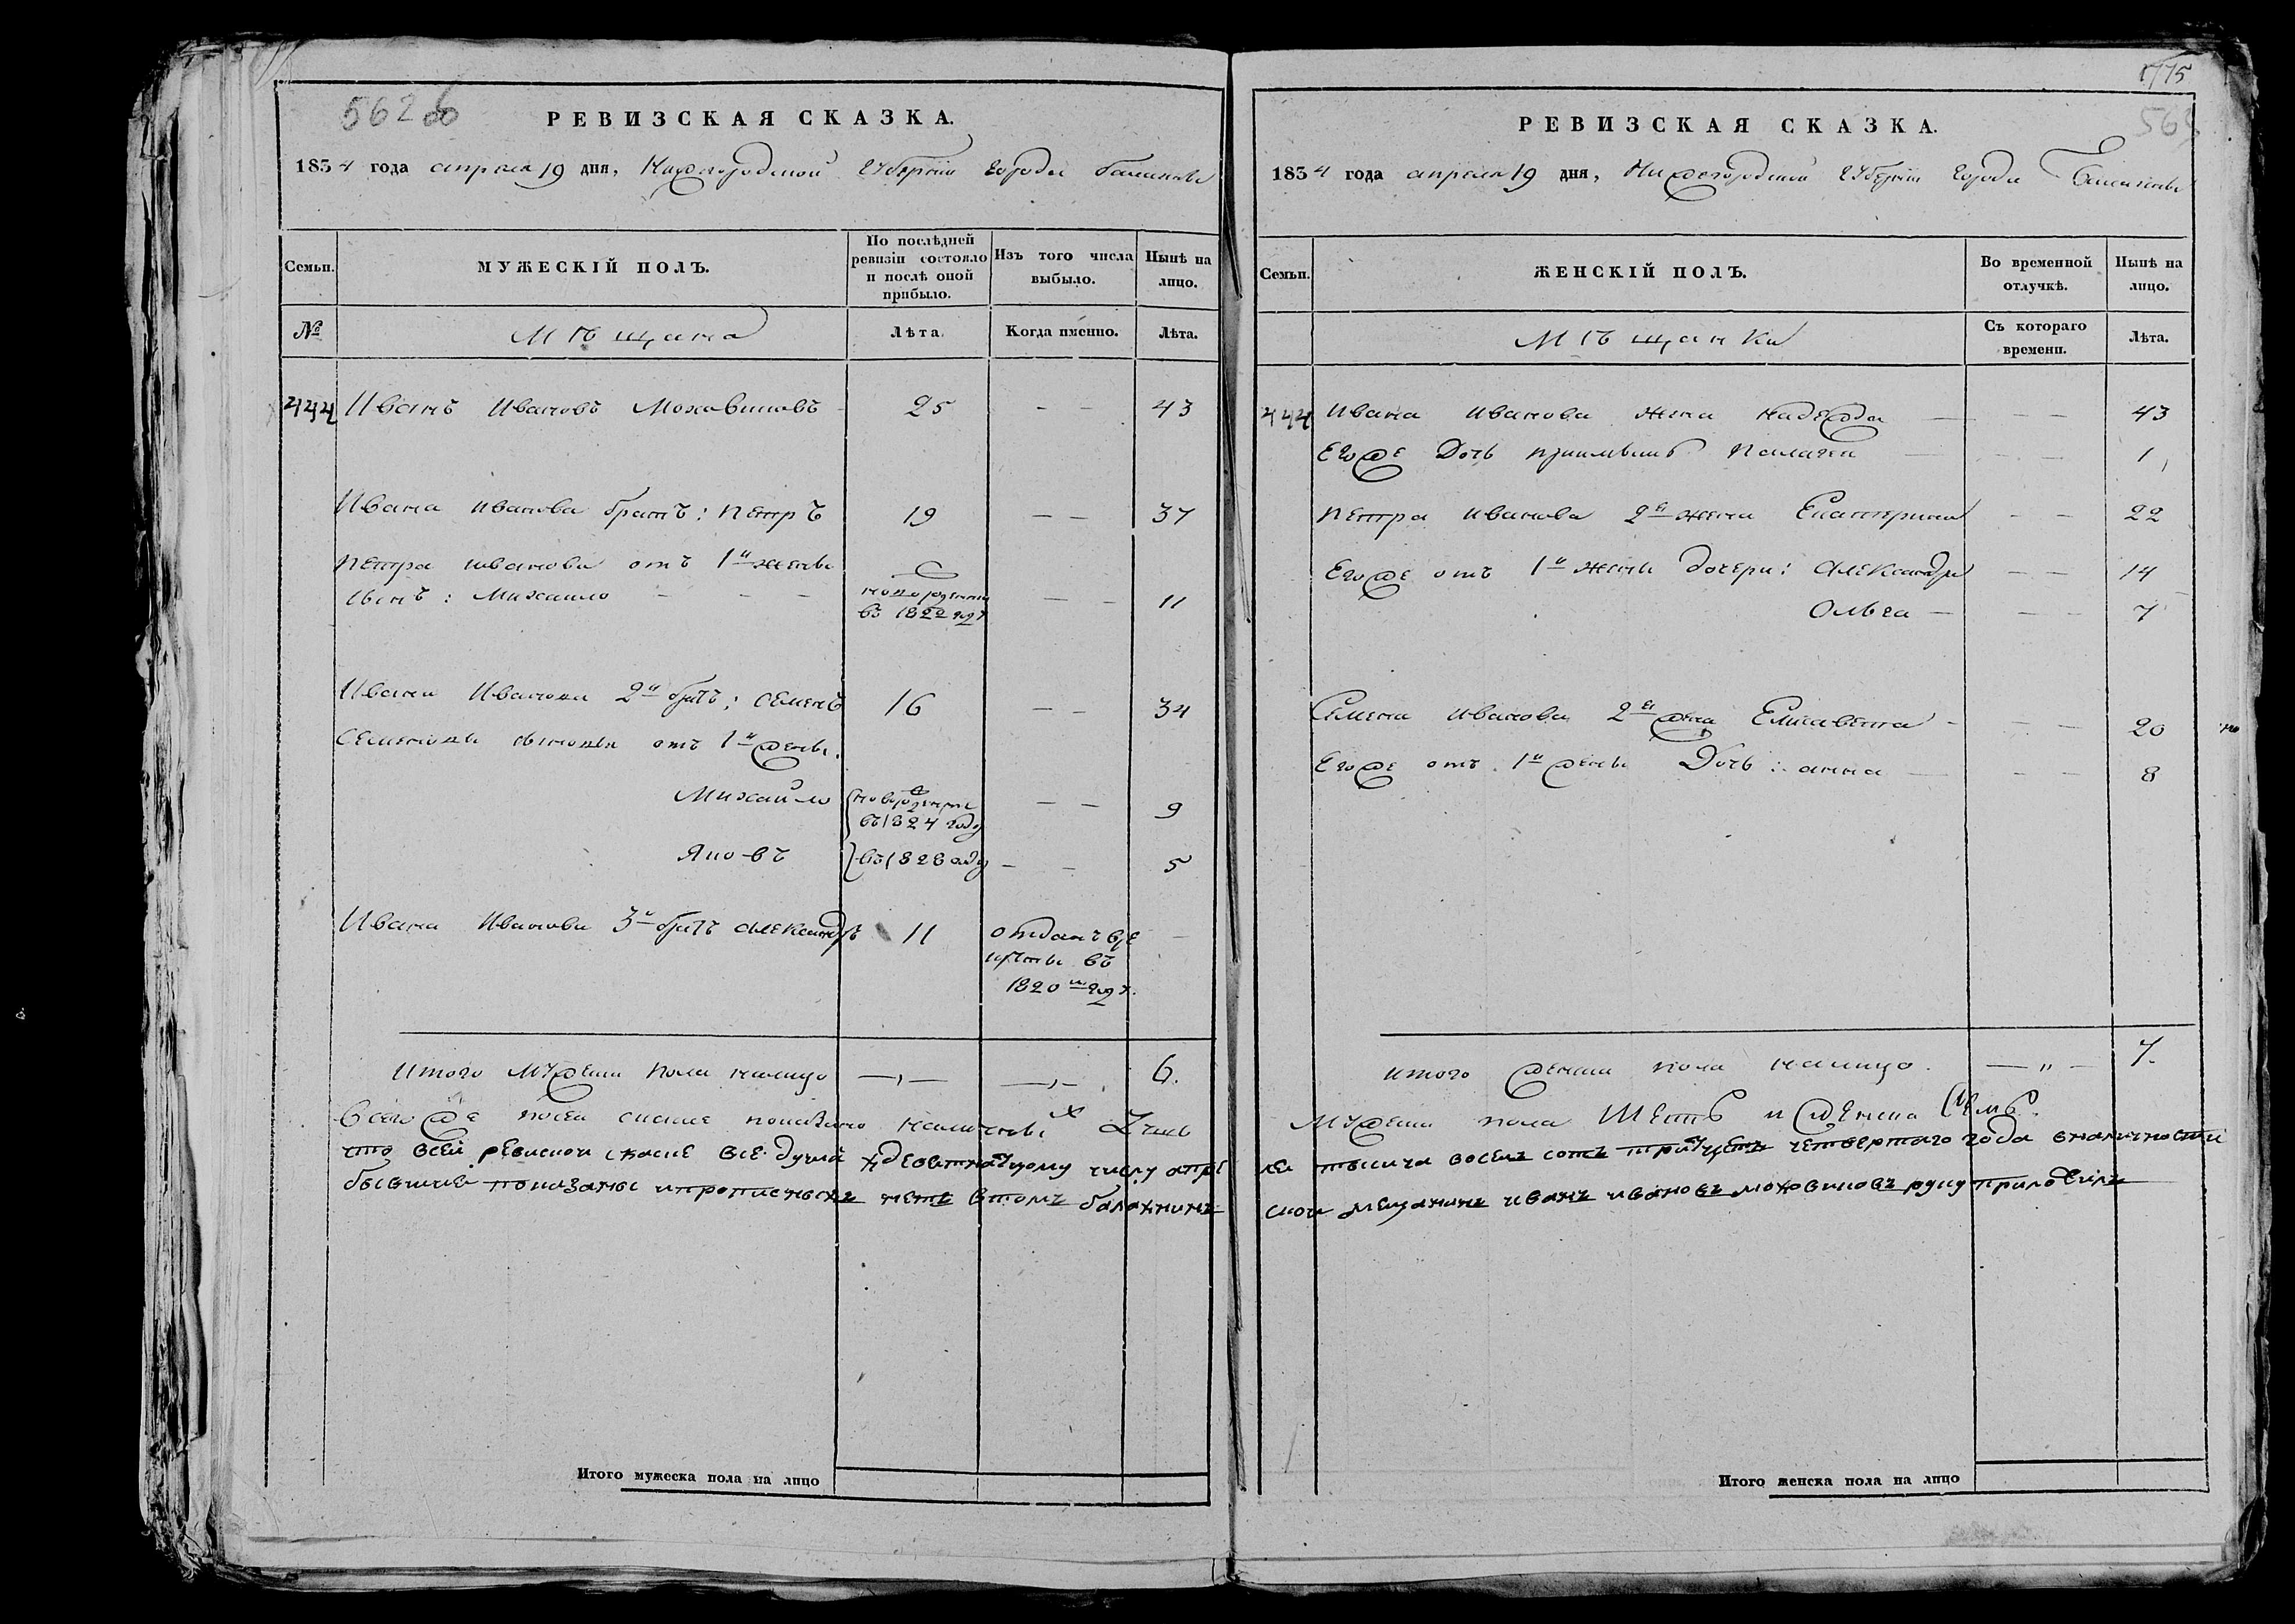 562 об
РЕВИЗСКАЯ СКАЗКА.
1834 года апреля 19 дня, Нижегородской Губерніи города балахны
Семьи.
МУЖЕСКІЙ ПОЛЪ.
По послѣдней
ревизіи состояло
и послѣ оной
прибыло.
Изъ того числа
выбыло.
Нынѣ на
лицо.
№
Мѣщана
Лѣта.
Когда именно.
Лѣта.
444 Иванъ Ивановъ Моховиковъ 25 — — 43
Ивана иванова братъ: петръ 19 — — 37
петра иванова отъ 1й жены
сынъ: Михаило — — — новорожденный въ 1822 году — — 11
Ивана Иванова 2й братъ: семенъ 16 — — 34
семеновы сыновья отъ 1й жены:
Михайло новорожденные въ 1824 году — — 9
Яковъ въ 1828 году — — 5
Ивана Иванова 3й братъ александръ 11 отданъ в рекруты въ 1820м году. —
итого мужеска пола налицо —,— —,— 6.
Всего же по сей сказке показано наличныхъ душъ
что всей ревиской скаске все души к девятнацотому числу апре
бывшие показаны и прописныхъ нетъ в томъ балахнинъ
1775
РЕВИЗСКАЯ СКАЗКА.
1834 года апреля 19 дня, Нижегородской Губерніи города Балахны
Семьи.
ЖЕНСКІЙ ПОЛЪ.
Во временной
отлучкѣ.
Нынѣ на
лицо.
Мѣщанки
Съ котораго
времени.
Лѣта.
444 Ивана иванова жена надежда — — — 43
Его же дочь Палагея — — — 1
петра иванова 2я жена Екатерина — — 22
Его же отъ 1й жены дочери: александра — — 14
Ольга — — — 7
Семена иванова 2я жена Елисавета — — — 20
Его же отъ 1й жены Дочь: анна — — — 8
итого женска пола налицо. — „ — 7.
мужеска пола Шесть и женска Семь.
ля тысича восемъ сотъ тритцеть четвертаго года вналичности
ской мещанинъ иванъ ивановъ моховиковъ руку приложилъ
Итого мужеска пола на лицо
Итого женска пола на лицо